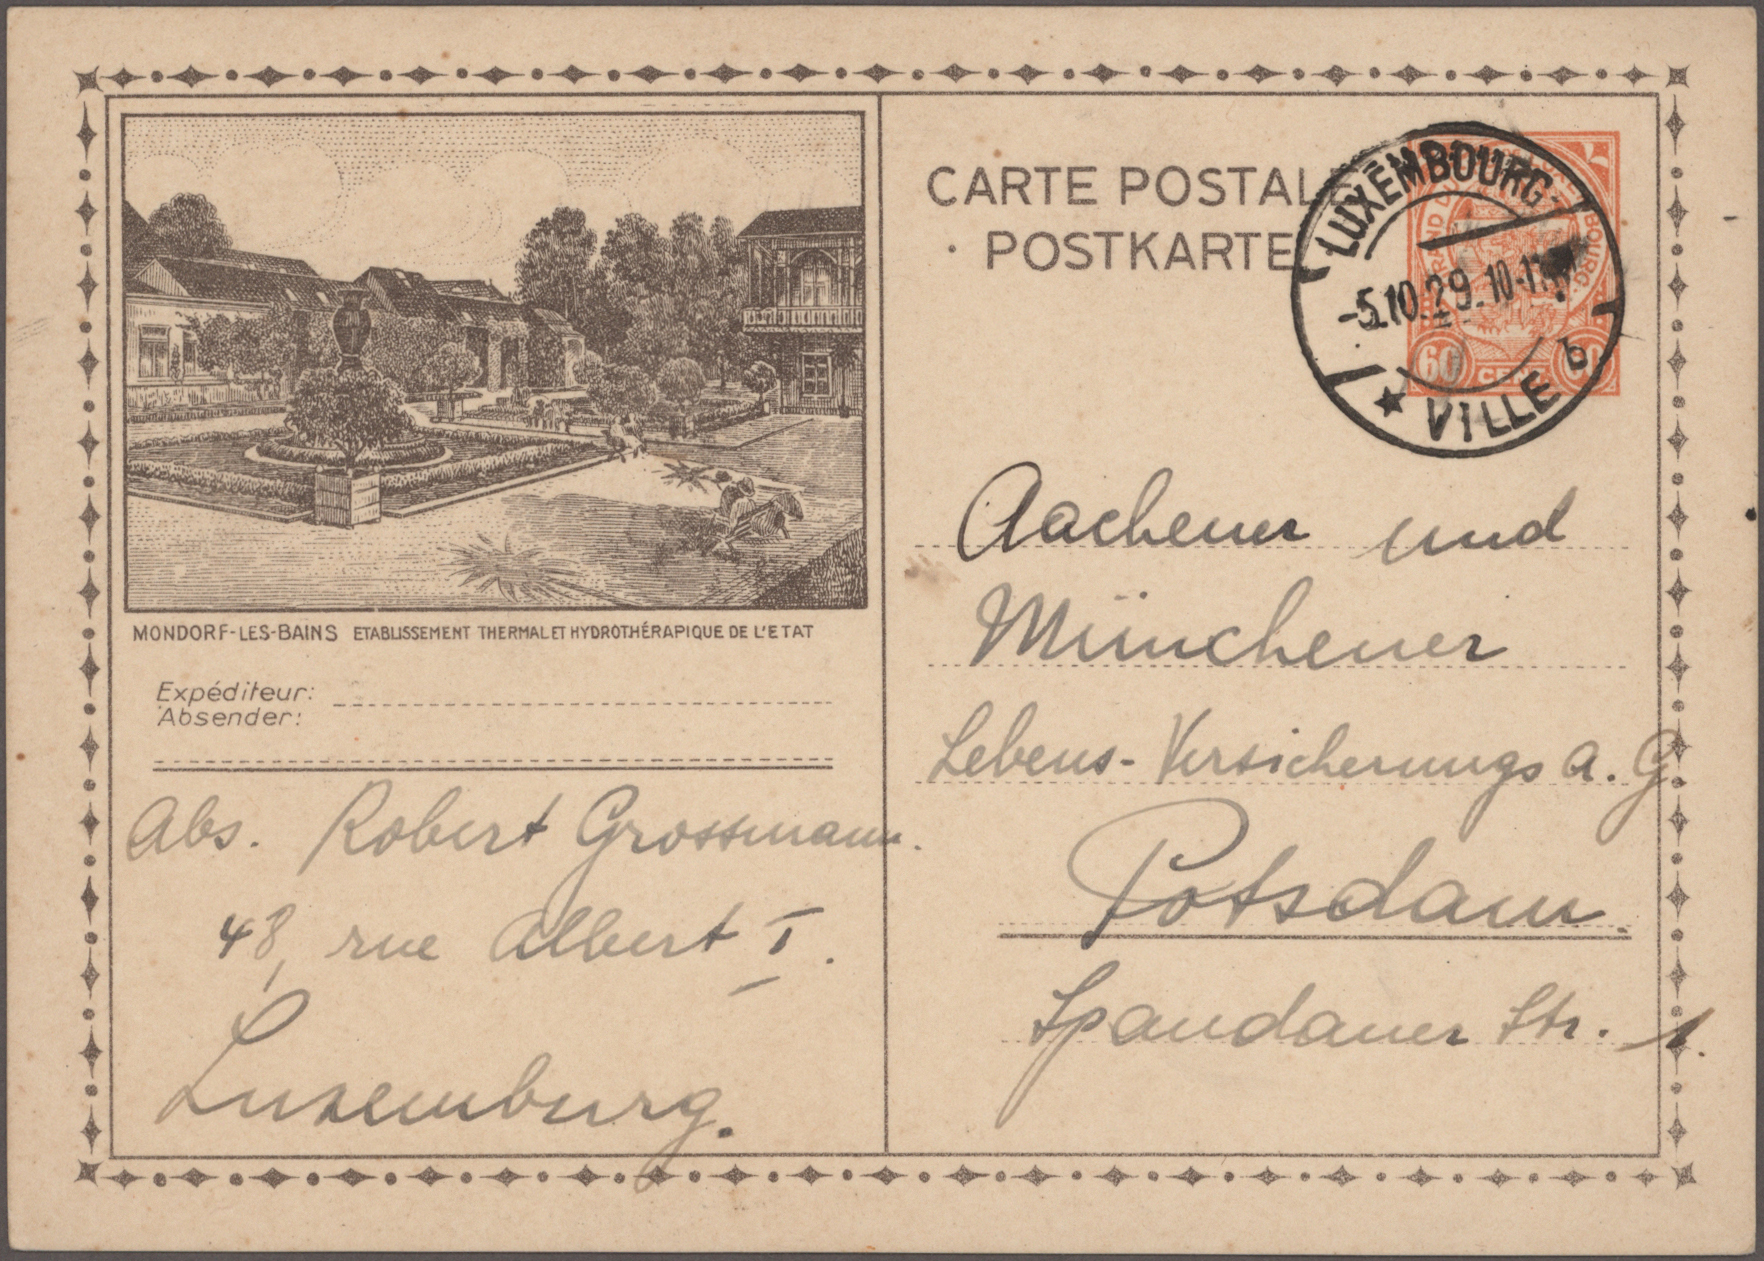 CARTE POSTALE
· POSTKARTE
LUXEMBOURG-
-5.10.29.10-11
★ VILLE b
60 CENT.
MONDORF-LES-BAINS ETABLISSEMENT THERMAL ET HYDROTHÉRAPIQUE DE L'ETAT
Expéditeur:
Absender:
Abs. Robert Grossmann.
48, rue Albert I.
Luxemburg.
Aachener und
Münchener
Lebens-Versicherungs A. G.
Potsdam.
Spandauer Str. 1.